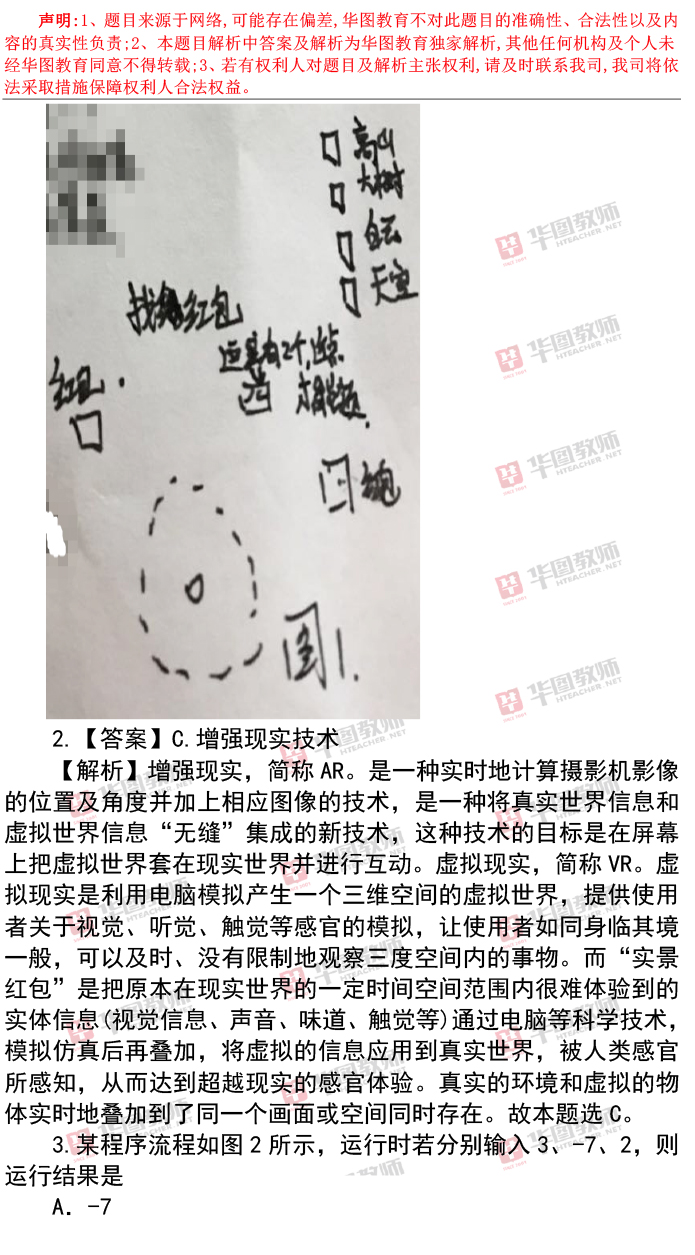 声明:1、题目来源于网络,可能存在偏差,华图教育不对此题目的准确性、合法性以及内
容的真实性负责;2、本题目解析中答案及解析为华图教育独家解析,其他任何机构及个人未
经华图教育同意不得转载;3、若有权利人对题目及解析主张权利,请及时联系我司,我司将依
法采取措施保障权利人合法权益。
高山
大树
白云
天空
找红包
红包.
图1.
华图教师
HTEACHER.NET
华图教师
HTEACHER.NET
华图教师
HTEACHER.NET
华图教师
HTEACHER.NET
华图教师
HTEACHER.NET
2.【答案】C.增强现实技术
【解析】增强现实，简称 AR。是一种实时地计算摄影机影像
的位置及角度并加上相应图像的技术，是一种将真实世界信息和
虚拟世界信息“无缝”集成的新技术，这种技术的目标是在屏幕
上把虚拟世界套在现实世界并进行互动。虚拟现实，简称 VR。虚
拟现实是利用电脑模拟产生一个三维空间的虚拟世界，提供使用
者关于视觉、听觉、触觉等感官的模拟，让使用者如同身临其境
一般，可以及时、没有限制地观察三度空间内的事物。而“实景
红包”是把原本在现实世界的一定时间空间范围内很难体验到的
实体信息(视觉信息、声音、味道、触觉等)通过电脑等科学技术，
模拟仿真后再叠加，将虚拟的信息应用到真实世界，被人类感官
所感知，从而达到超越现实的感官体验。真实的环境和虚拟的物
体实时地叠加到了同一个画面或空间同时存在。故本题选 C。
3.某程序流程如图 2 所示，运行时若分别输入 3、-7、2，则
运行结果是
A. -7